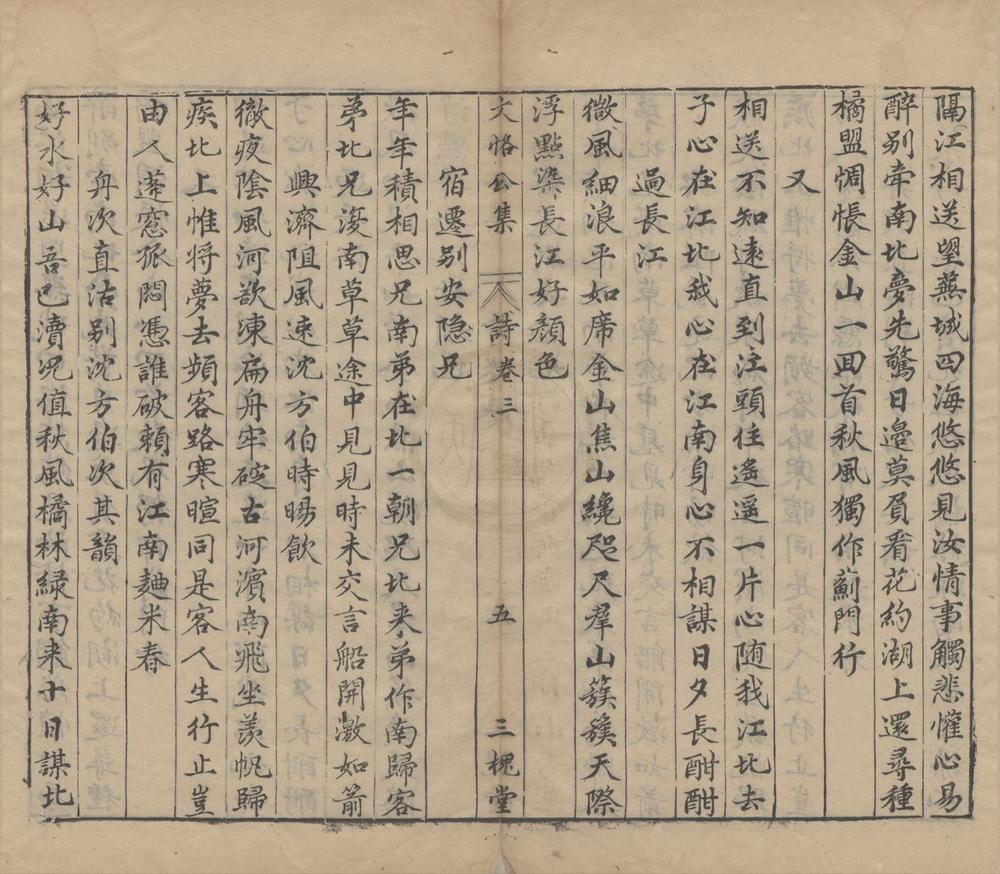 隔江相送望蕪城四海悠悠見汝情事觸悲懽心易
醉别牽南北夢先驚日邉莫負看花約湖上還尋種
橘盟惆悵金山一回首秋風獨作薊門行
又
相送不知遠直到注頭住遥遥一片心随我江北去
子心在江北我心在江南身心不相謀日夕長酣酣
過長江
微風細浪平如席金山焦山纔咫尺羣山簇簇天際
浮點染長江好顔色
文恪公集 詩卷三 五 三槐堂
宿遷别安隐兄
年年積相思兄南弟在北一朝兄北来弟作南歸客
弟北兄復南草草途中見見時未交言船開激如箭
興濟阻風速沈方伯時暘飲
徹夜陰風河欲凍扁舟牢碇古河濱南飛坐羡帆歸
疾北上惟将夢去頻客路寒暄同是客人生行止豈
由人蓬窓孤悶憑誰破賴有江南麯米春
舟次直沽别沈方伯次其韻
好水好山吾已瀆况值秋風橘林緑南来十日謀北